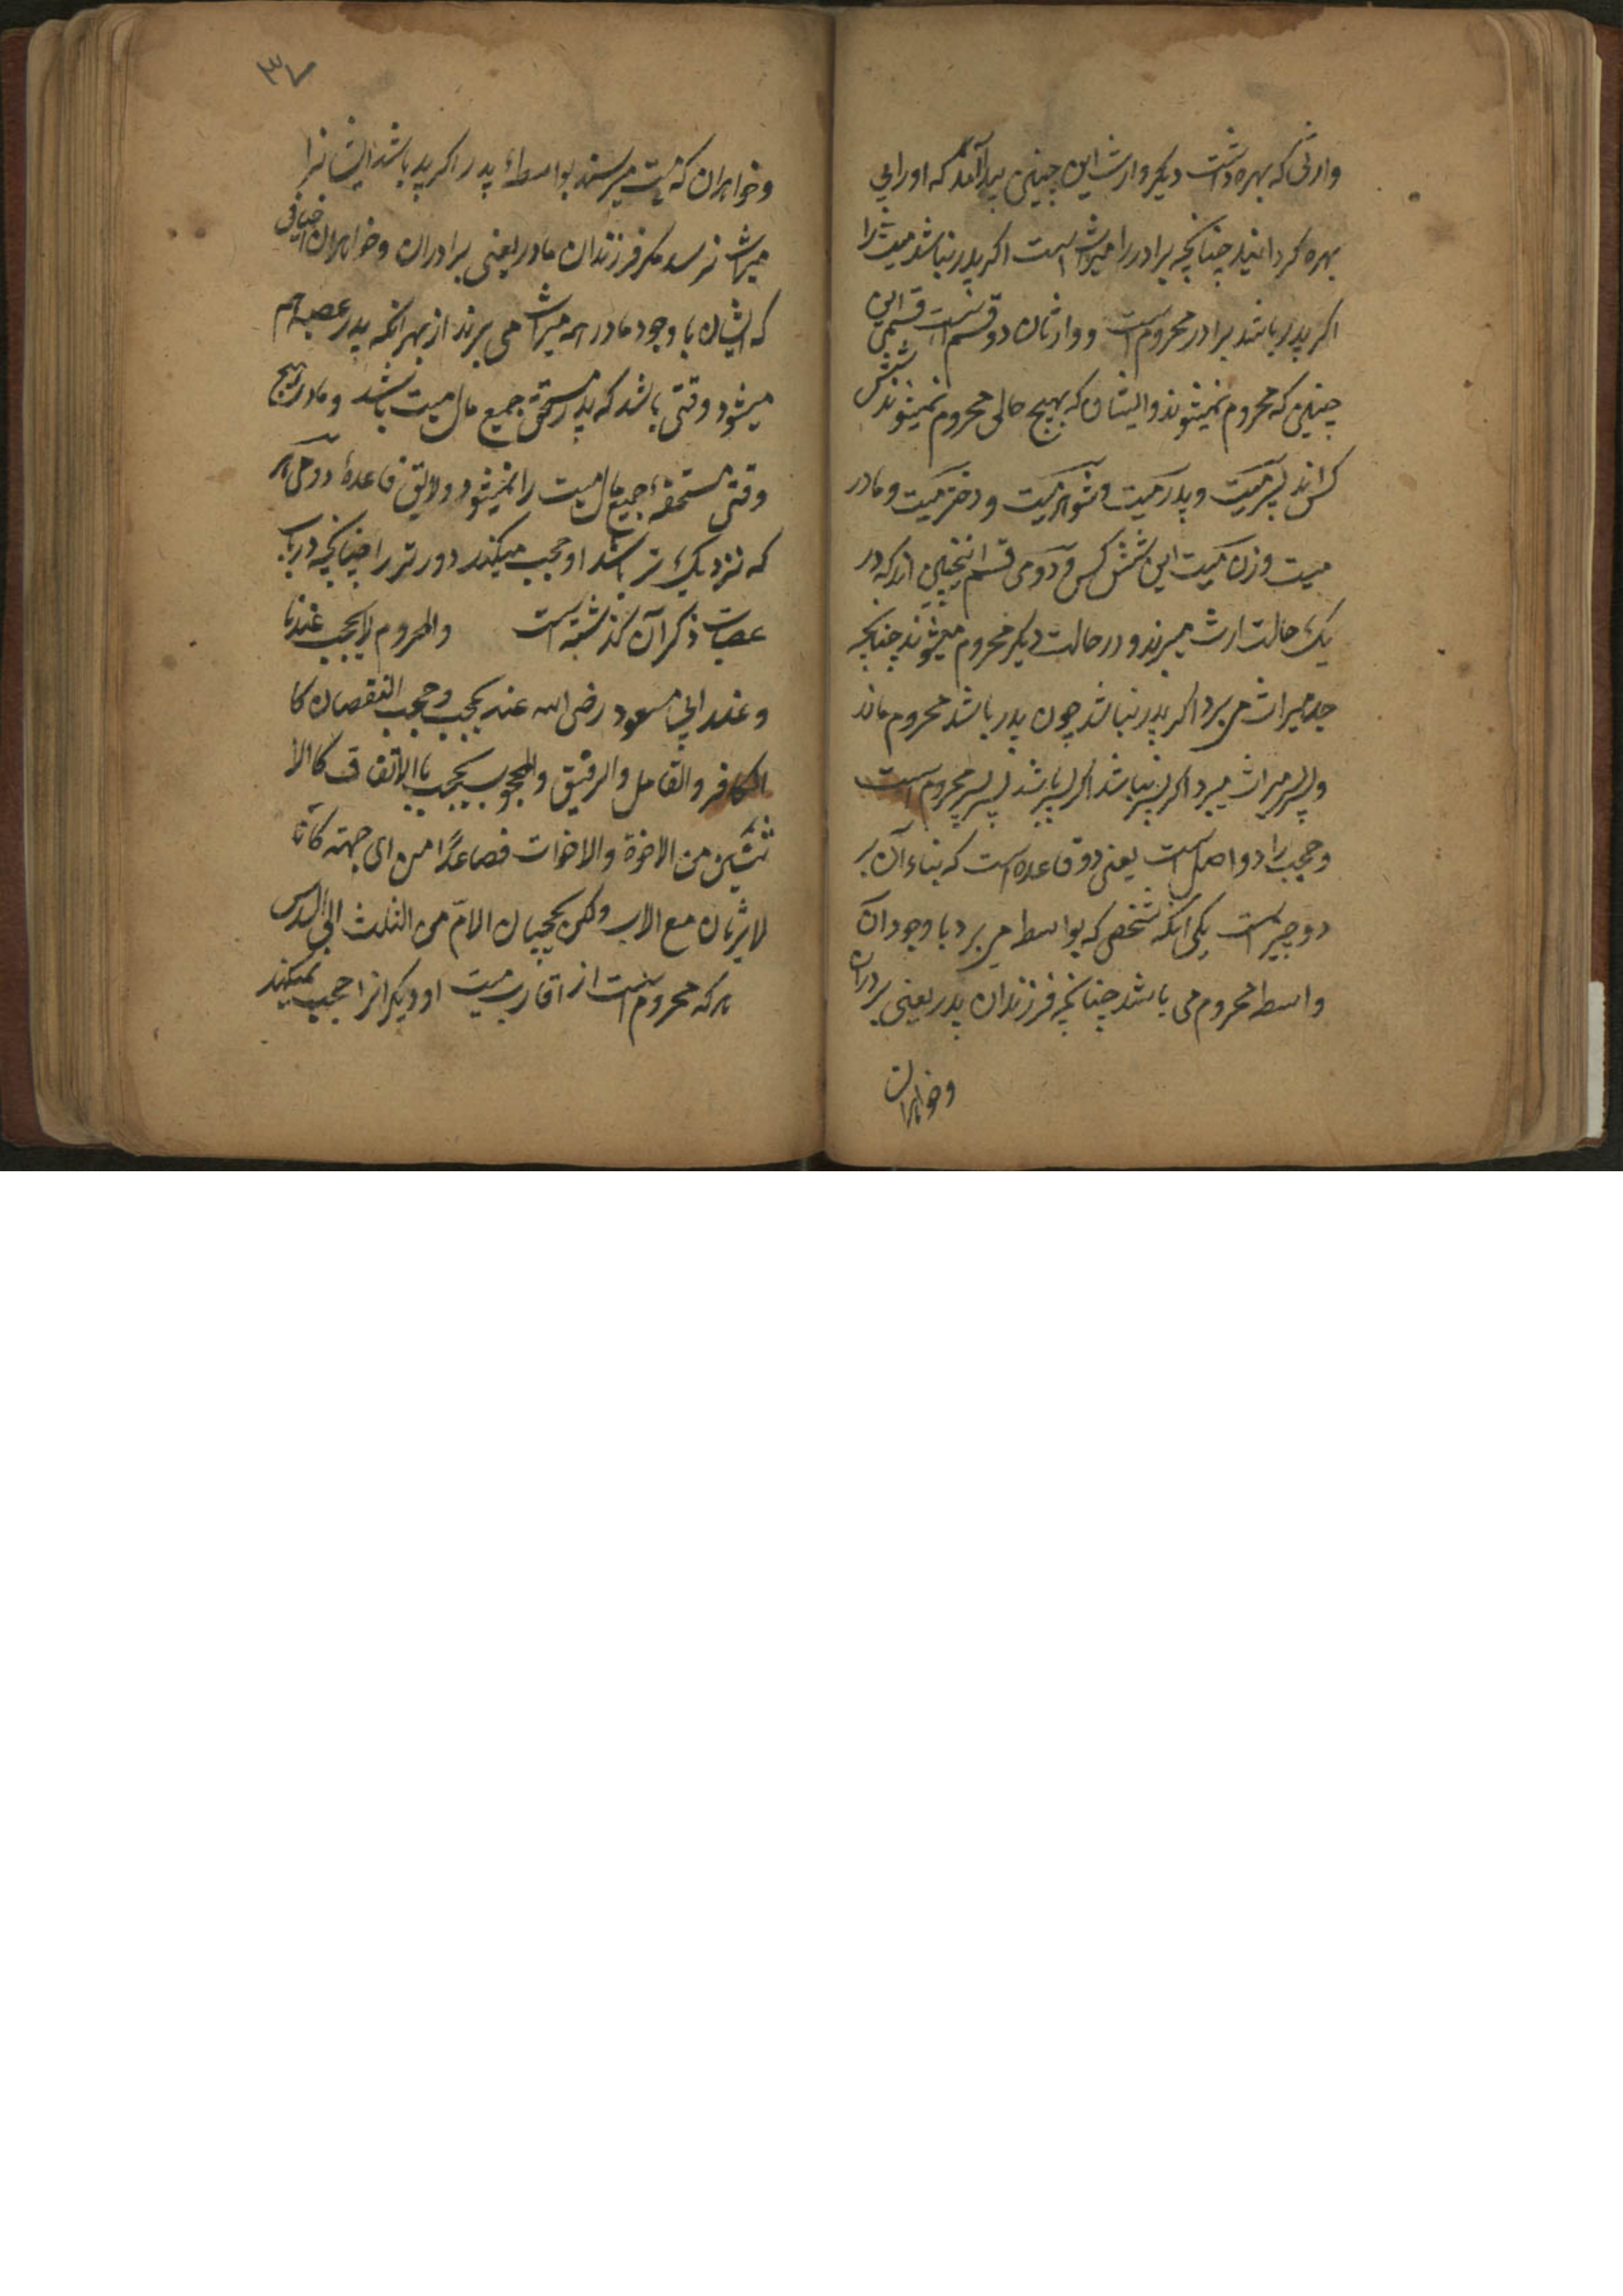 وارثی که بهره داشت دیکر وارث این چنین پیدا آمد که او را بی
بهره کردانید چنانچه برادر را میراث است اکر پدر نباشد میت را
اکر پدر باشد برادر محروم است و وارثان دو قسم است قسمی این
چنین که محروم نمیشوند و ایشان که بهیچ حالی محروم نمیشوند شش
کس اند پسر میت و پدر میت و شوهر میت و دختر میت و مادر
میت و زن میت این شش کس و دومی قسم اینچنین اند که در
یک حالت ارث میبرند و در حالت دیکر محروم میشوند چنانچه
جد میراث می برد اکر پدر نباشد چون پدر باشد محروم ماند
و پسر پسر میراث میبرد اکر پسر نباشد اکر پسر باشد پسر پسر محروم است
و حجب را دو اصل است یعنی دو قاعده است که بناء آن بر
دو چیز است یکی آنکه شخصی که بواسطه می برد با وجود آن
واسطه محروم می باشد چنانچه فرزندان پدر یعنی برادران
وخواهران
۳۷
وخواهران که بمیت میرسند بواسطهٔ پدر اکر پدر باشد ایشانرا
میراث نرسد مکر فرزندان مادر یعنی برادران وخواهران اخیافی
که ایشان با وجود مادر هم میراث می برند از بهر آنکه پدر عصبه هم
میشود وقتی باشد که پدر مستحق جمیع مال میت باشد و مادر هیچ
وقتی مستحقهٔ جمیع مال میت را نمیشود و لایق قاعدهٔ دومی هر
که نزدیک تر باشد او حجب میکند دورتر را چنانچه در باب
عصبات ذکر آن کذشته است والمحروم لا یحجب عندنا
وعند ابن مسعود رضی الله عنه یحجب حجب النقصان کا
الکافر والقاتل والرقیق والمحجوب یحجب بالاتفاق کالا
ثنین من الاخوة والاخوات فصاعدًا من ای جهة کانا
لا یرثان مع الاب ولکن یحجبان الامّ من الثلث الی السدس
هر که محروم است از اقارب میت او دیکرانرا حجب نمیکند